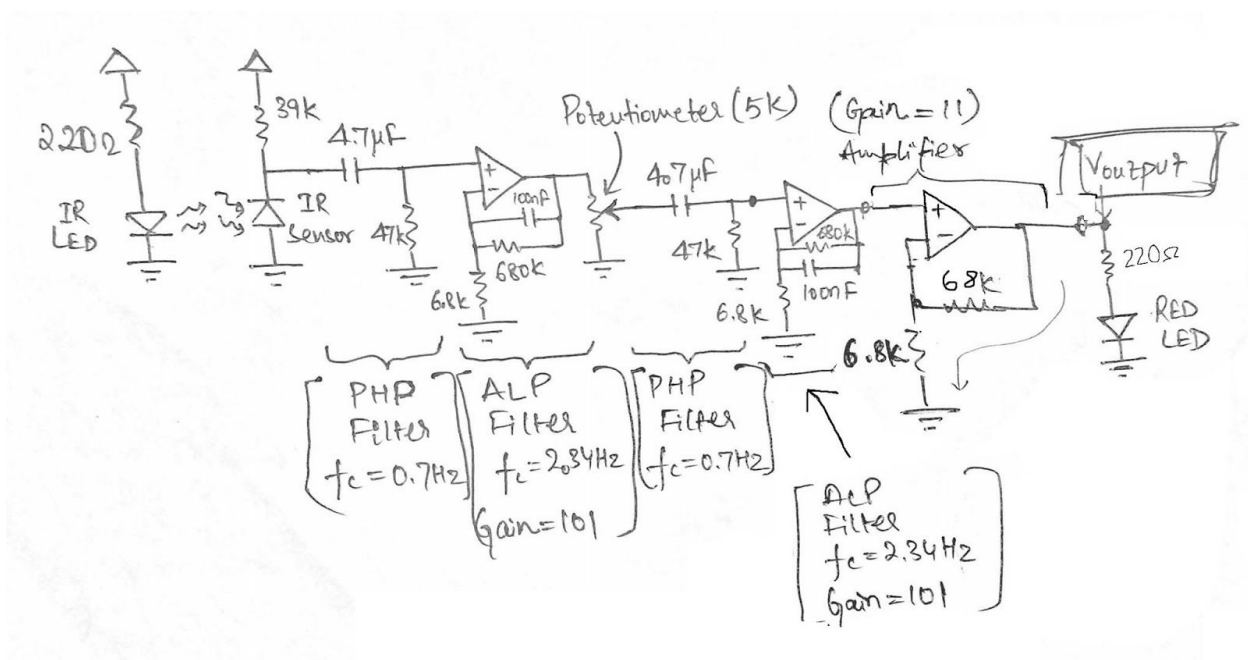 220Ω
IR
LED
39K
4.7μF
IR
Sensor
47K
100nF
680K
6.8K
Potentiometer (5K)
4.7μF
47K
680K
100nF
6.8K
(Gain = 11)
Amplifier
68K
6.8K
Voutput
220Ω
RED
LED
PHP
Filter
fc = 0.7Hz
ALP
Filter
fc = 2.34Hz
Gain = 101
PHP
Filter
fc = 0.7Hz
ALP
Filter
fc = 2.34Hz
Gain = 101